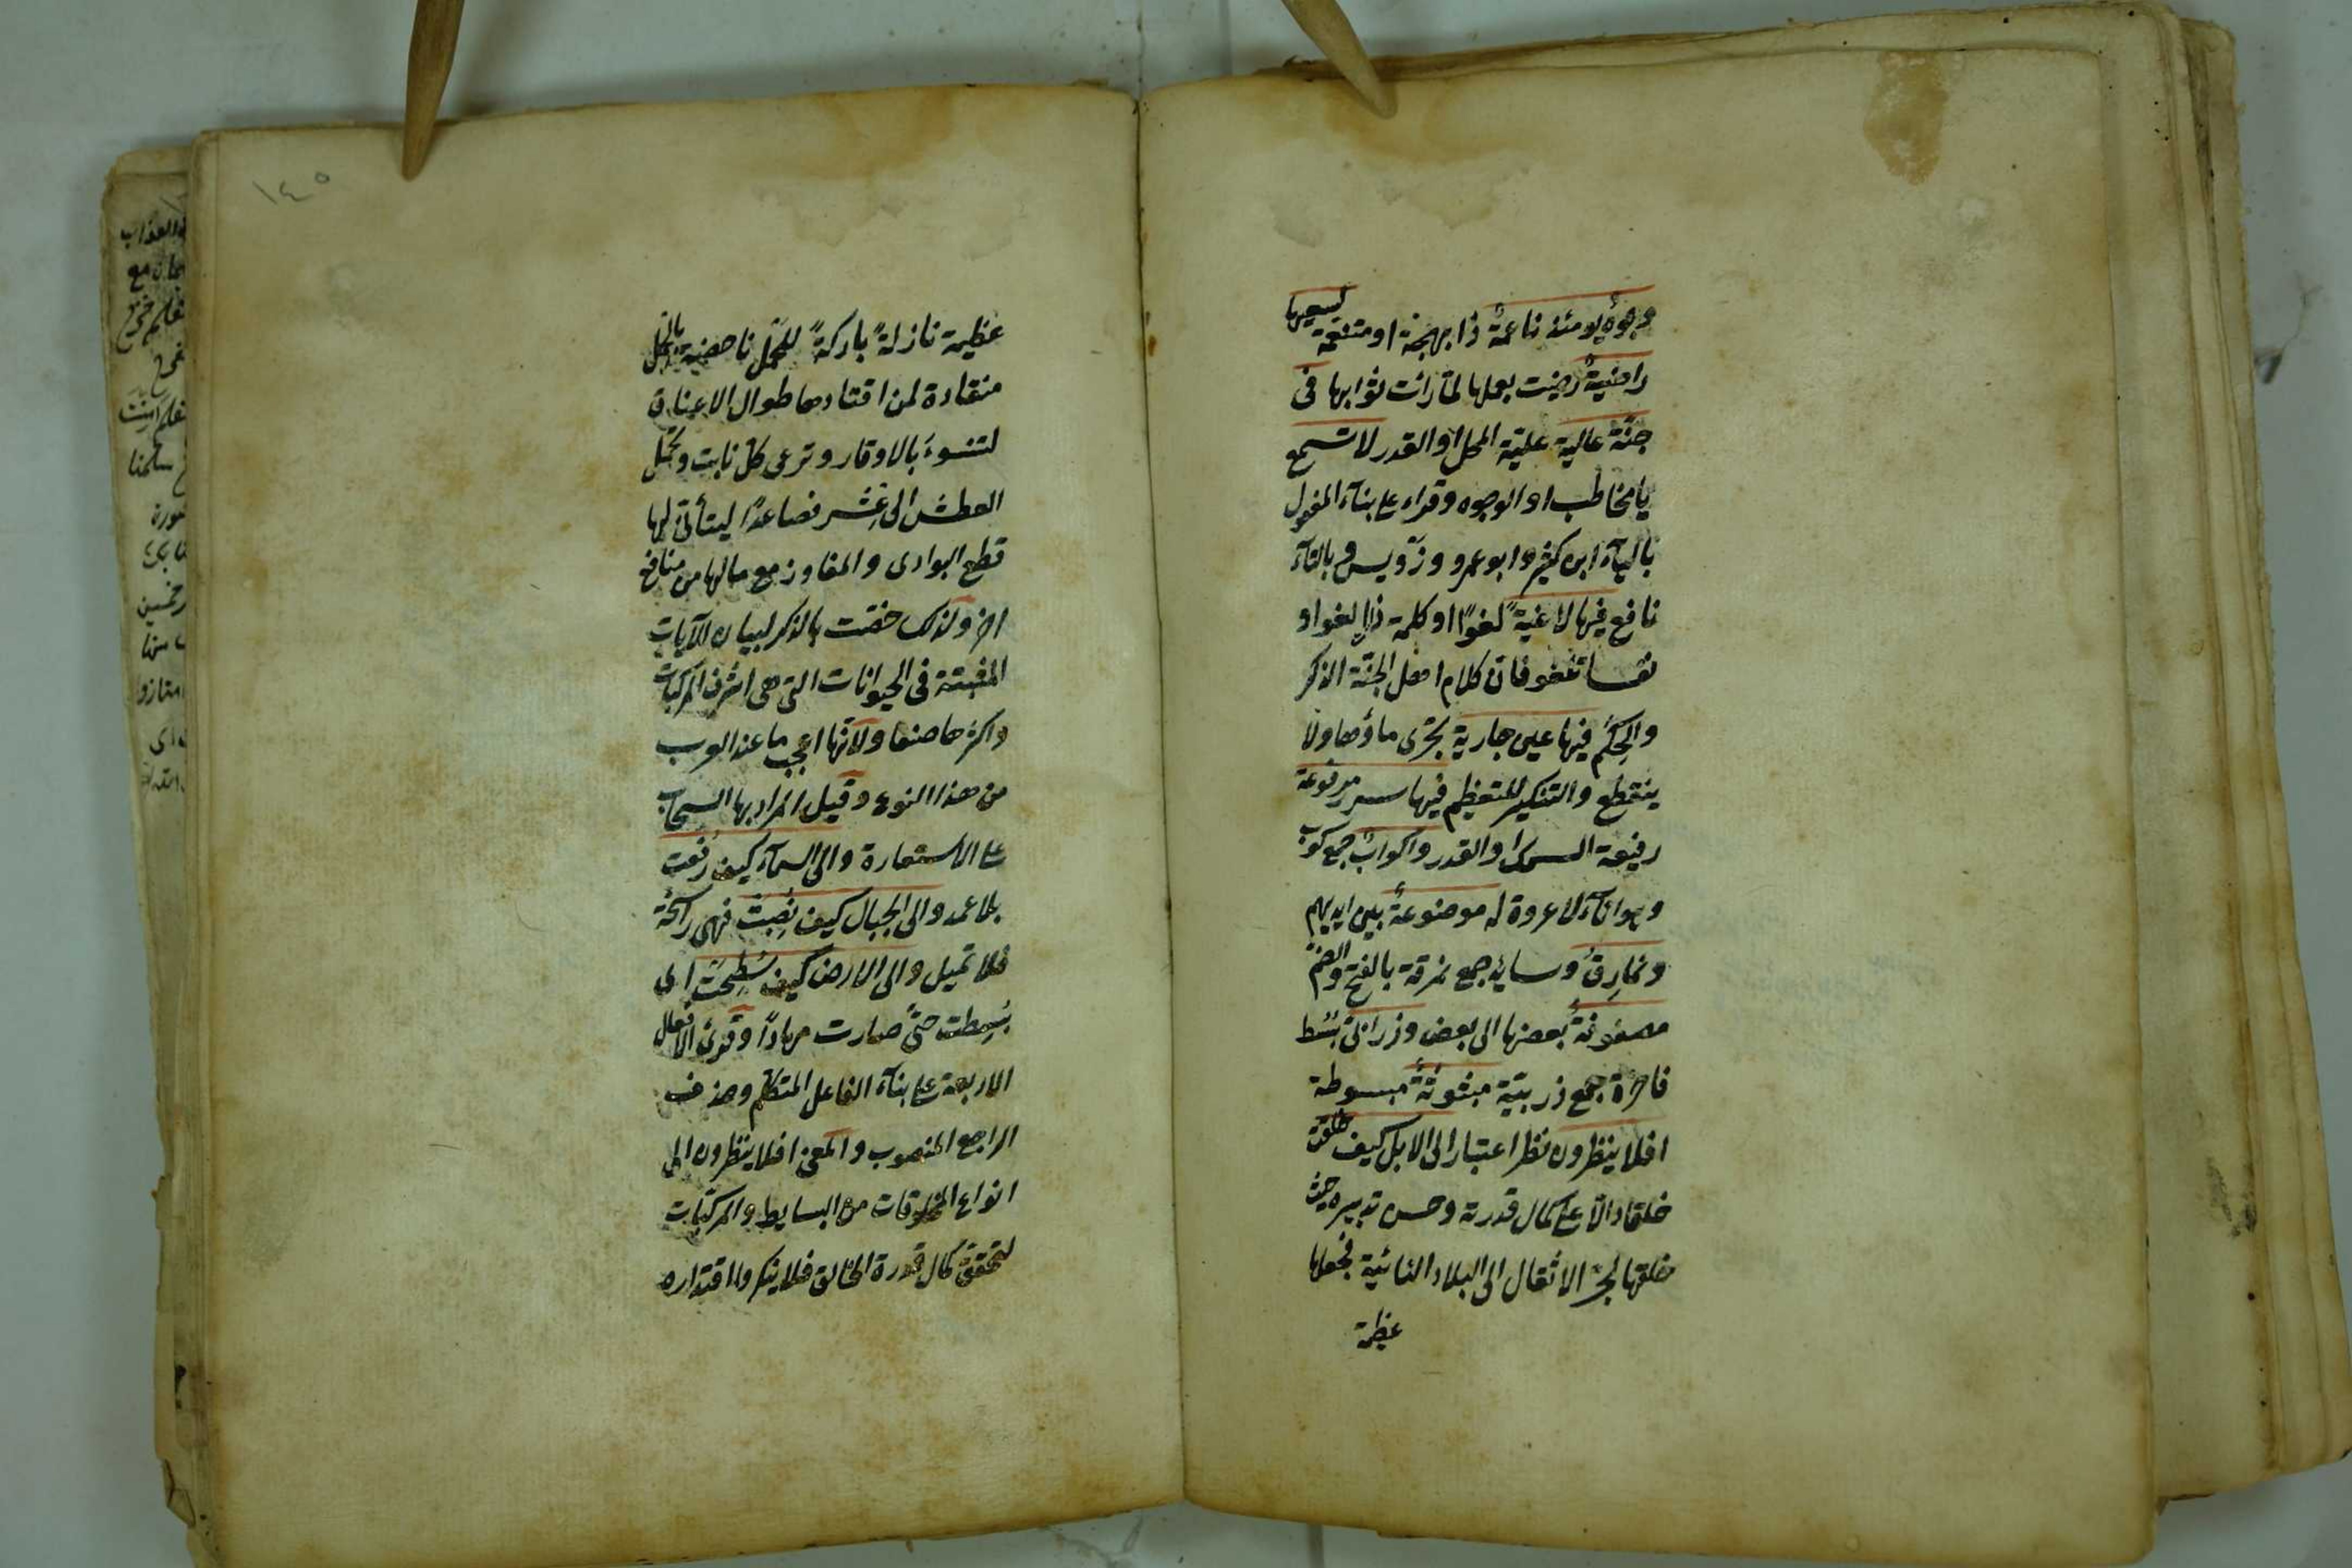 وجوه يومئذ ناعمة ذا بهجة او متنعمة لسعيها
راضية رضيت بعملها لما رأت ثوابها فى
جنة عالية علية المحل او القدر لا تسمع
يا مخاطب او الوجوه وقراء على بناء المفعول
بالياء ابن كثير وابو عمرو ورويس وبالتاء
نافع فيها لاغية لغوا او كلمة ذات لغو او
نفسا تلغو فان كلام اهل الجنة الذكر
والحكم فيها عين جارية يجرى ماؤها ولا
ينقطع والتنكير للتعظيم فيها سرر مرفوعة
رفيعة السمك او القدر واكواب جمع كوب
وهو اناء لا عروة له موضوعة بين ايديهم
ونمارق وسايد جمع نمرقة بالفتح والضم
مصفوفة بعضها الى بعض وزرابى بسط
فاخرة جمع زربية مبثوثة مبسوطة
افلا ينظرون نظر اعتبار الى الابل كيف خلقت
خلقا دالا على كمال قدرته وحسن تدبيره حيث
خلقها لجر الاثقال الى البلاد النائية فجعلها
عظيمة
١٤٥
عظيمة نازلة باركة للحمل ناهضة بالحمل
منقادة لمن اقتادها طوال الاعناق
لتنوء بالاوقار وترعى كل نابت وتحمل
العطش الى عشر فصاعدا ليتأتى لها
قطع البوادى والمفاوز مع مالها من منافع
اخر ولذلك خصت بالذكر لبيان الآيات
المنبثة فى الحيوانات التى هى اشرف المركبات
واكثرها صنعا ولانها اعجب ما عند العرب
من هذا النوع وقيل المراد بها السحاب
على الاستعارة والى السماء كيف رفعت
بلا عمد والى الجبال كيف نصبت فهى راسخة
فلا تميل والى الارض كيف سطحت اى
بسطت حتى صارت مهادا وقرئ الافعال
الاربعة على بناء الفاعل المتكلم وحذف
الراجع المنصوب والمعنى افلا ينظرون الى
انواع المخلوقات من البسايط والمركبات
لتحقق كمال قدرة الخالق فلا ينكروا اقتداره